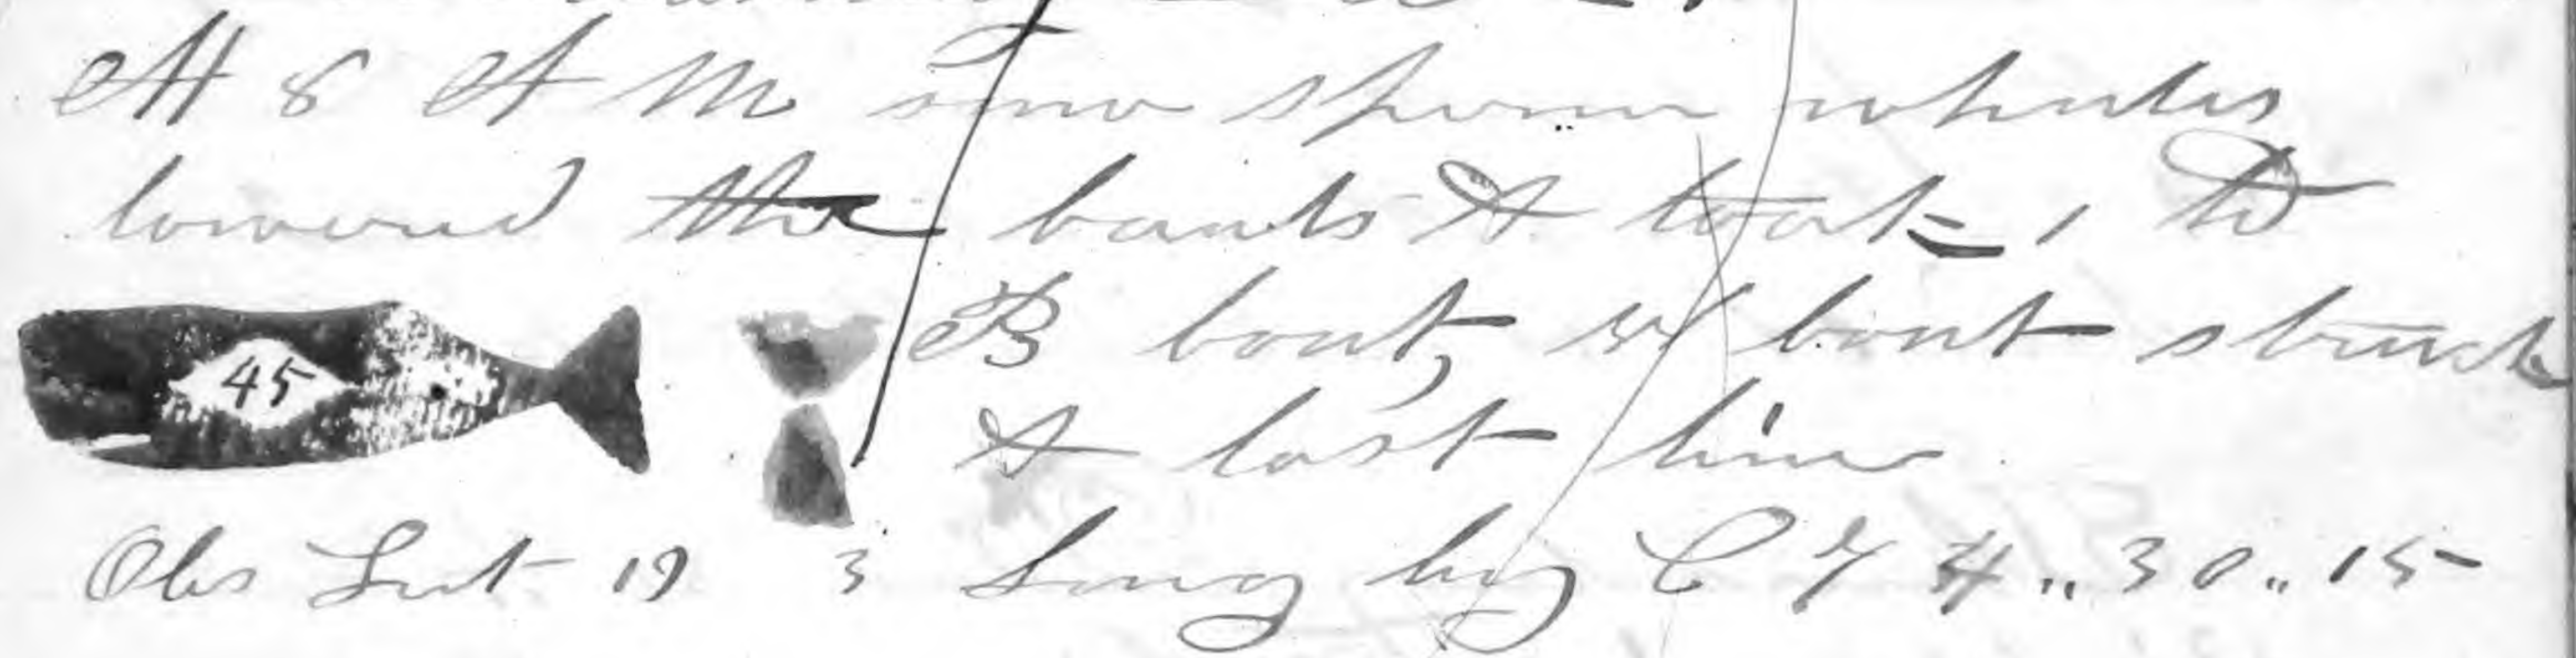 At 8 A M saw sperm whales
lowered the boats & took 1 to
B boat, W boat struck
45
& lost line
Obs Lat 19 3 Long by C 74 " 30 " 15